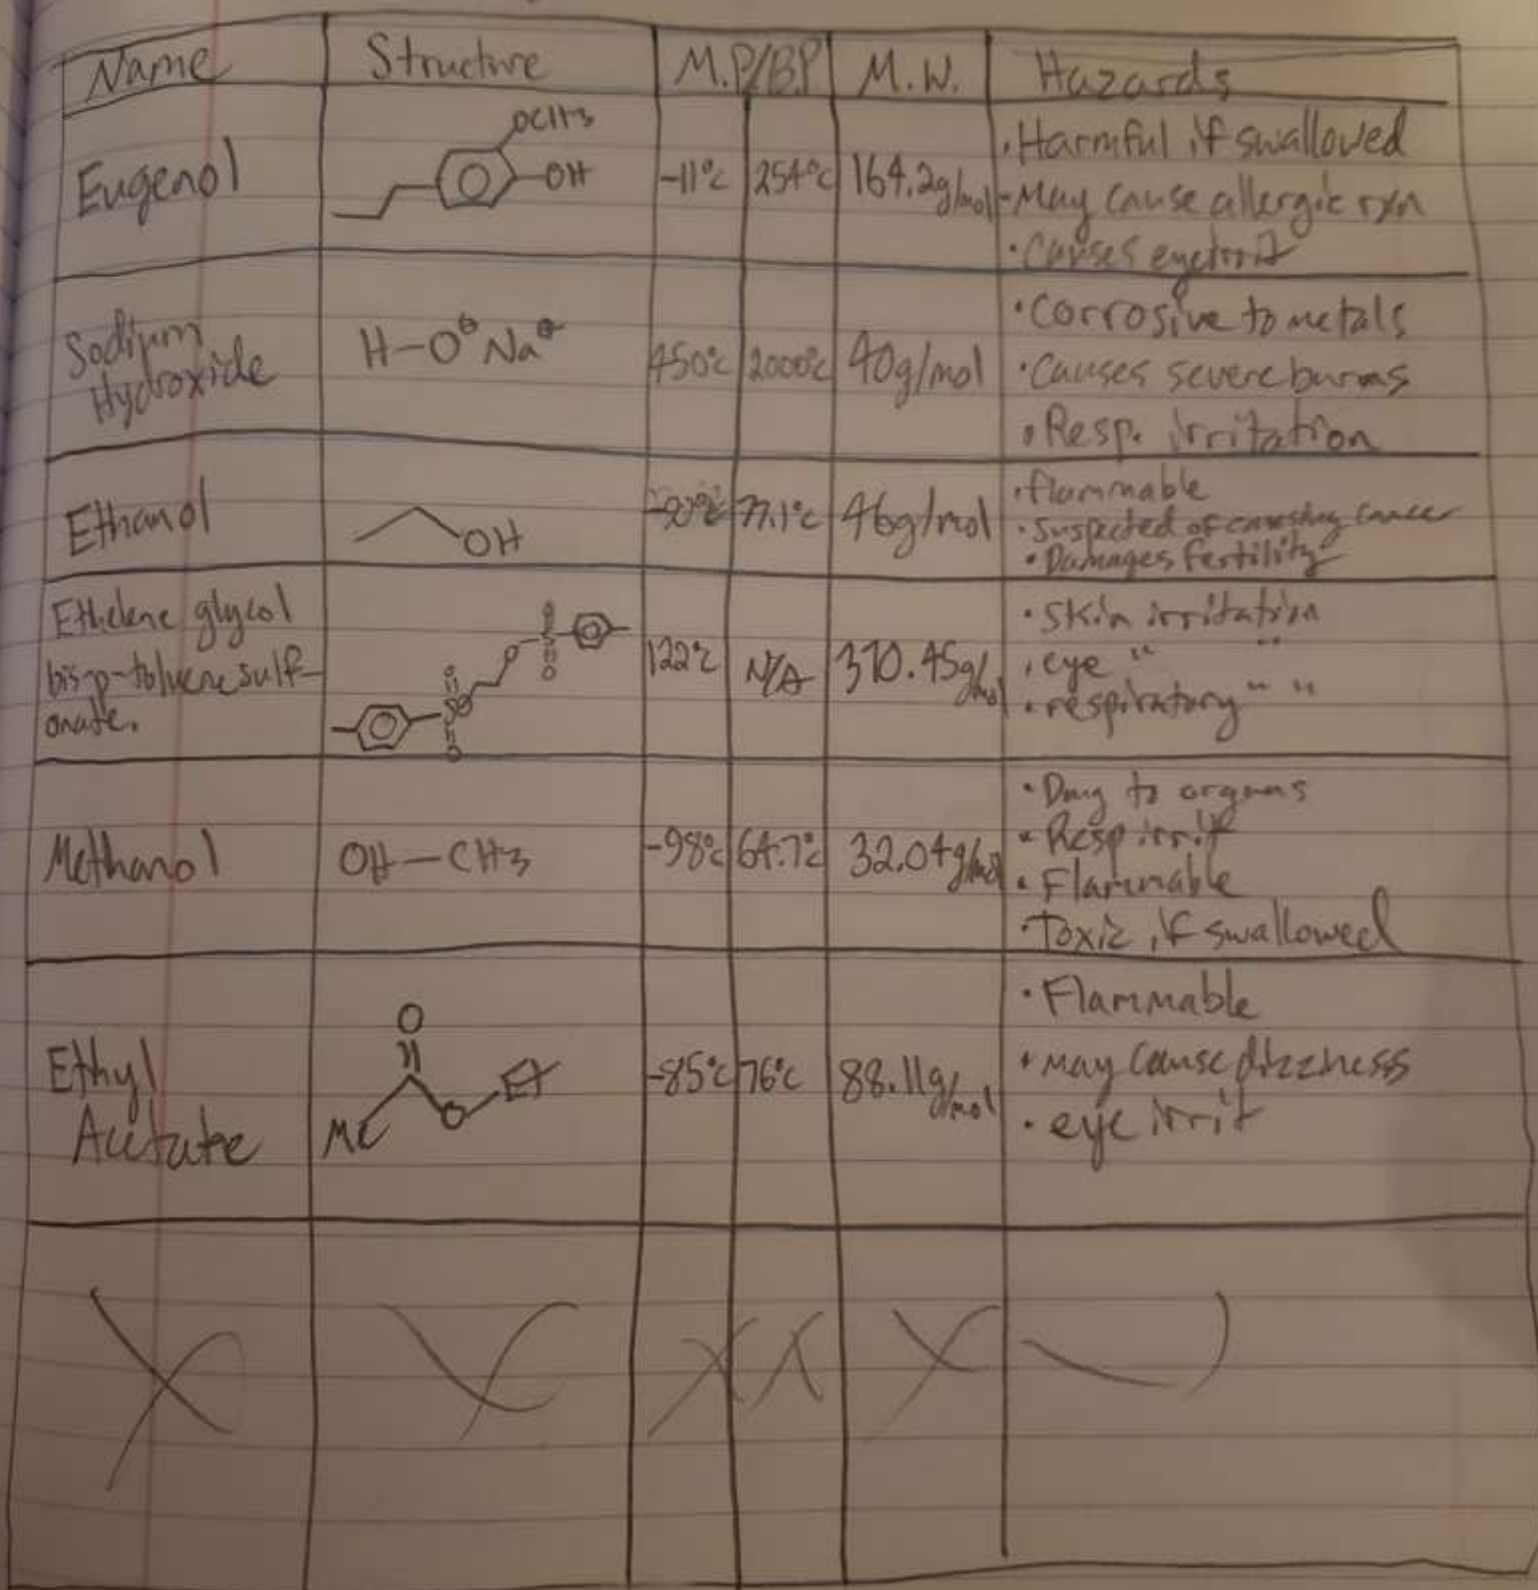 Name Structure M.P/B.P M.W. Hazards
OCH3
Eugenol OH -11°c 254°c 164.2g/mol
·Harmful if swallowed
-May cause allergic rxn
·Causes eye irrit
Sodium
Hydroxide
H-O⊖ Na⊕ 450°c 2000°c 40g/mol
·Corrosive to metals
·Causes severe burns
·Resp. irritation
Ethanol OH 77.1°c 46g/mol
·flammable
·suspected of causing cancer
·Damages fertility
Ethelene glycol
bis-p-toluene sulf-
onate.
O
O S
O
O
S O
O
122°c N/A 370.45g/mol
·Skin irritation
·eye " "
·respiratory " "
Methanol OH-CH3 -98°c 64.7°c 32.04g/mol
·Dmg to organs
·Resp irrit
·Flammable
·Toxic if swallowed
Ethyl
Acetate
O
Me O Et
-85°c 76°c 88.11g/mol
·Flammable
·may cause dizziness
·eye irrit